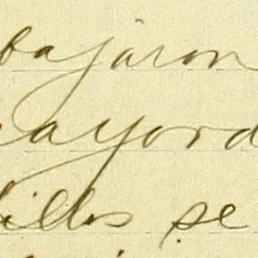 bajaron
ayord
illos se